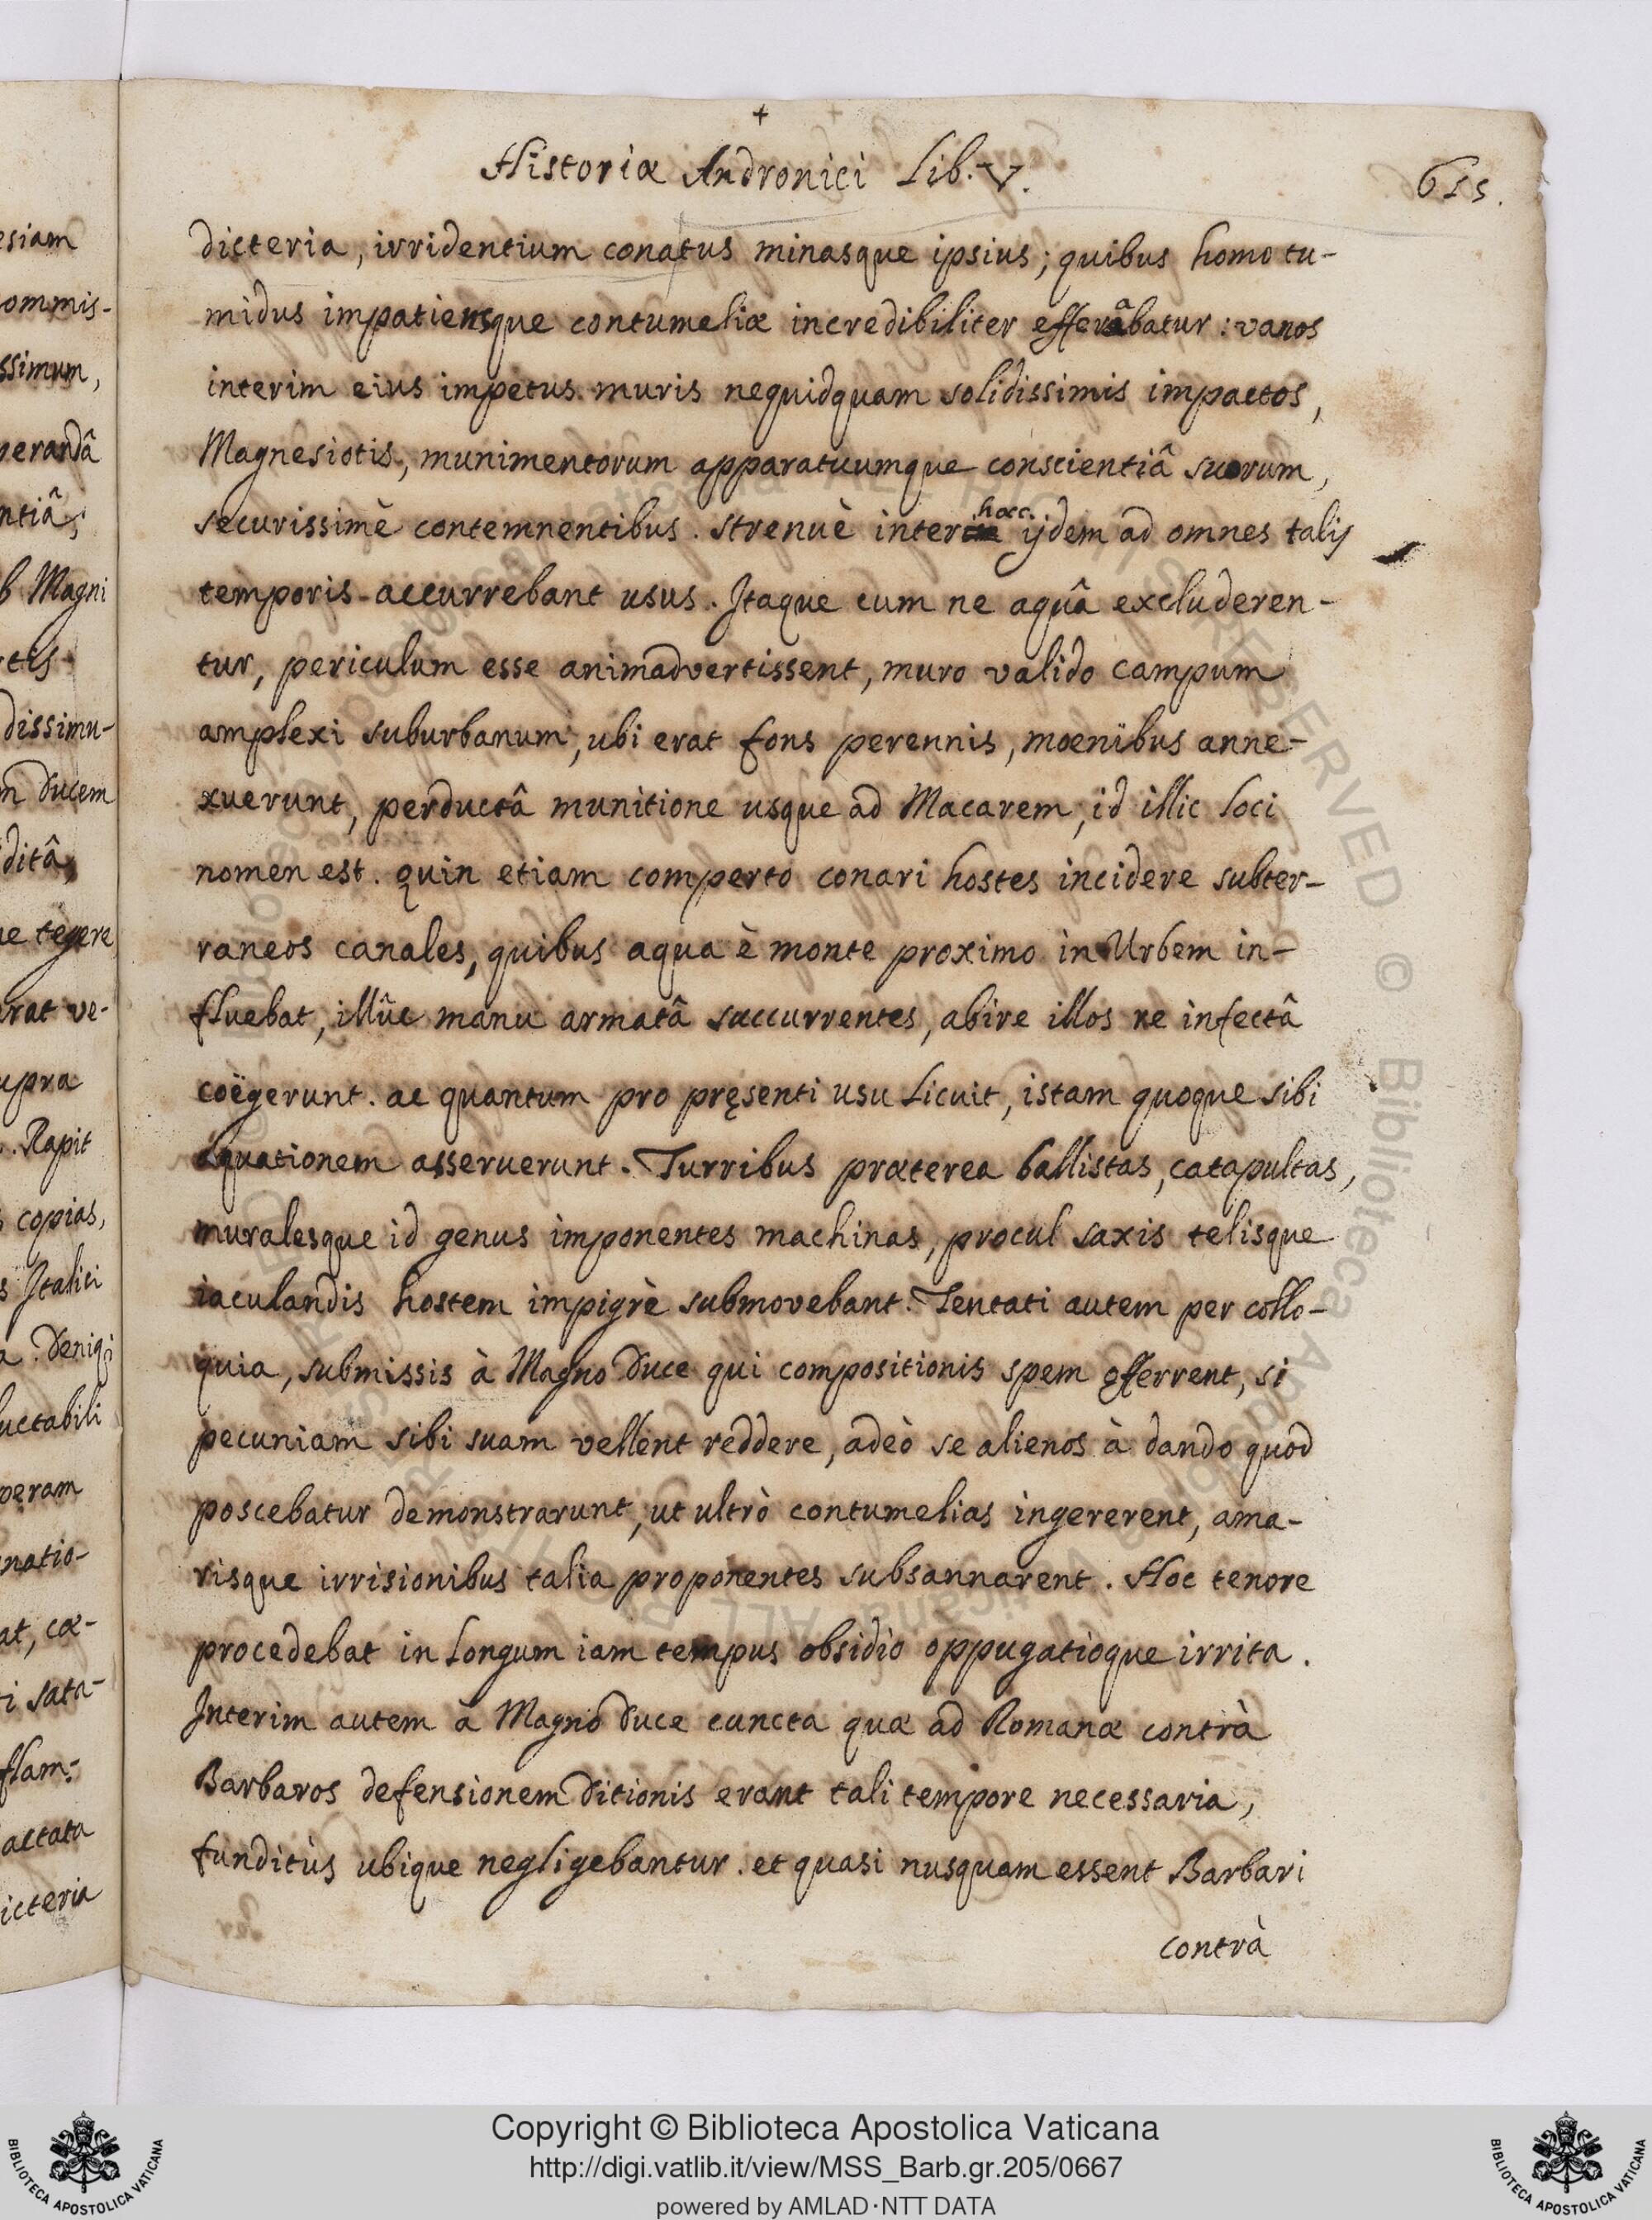 +
Historiæ Andronici Lib. V.
655.
dicteria, irridentium conatus minasque ipsius; quibus homo tu-
midus impatiensque contumeliæ incredibiliter efferabatur: vanos
interim eius impetus muris nequidquam solidissimis impactos,
Magnesiotis, munimentorum apparatuumque conscientiâ suorum,
securissimè contemnentibus. strenuè inter hæc ijdem ad omnes talis
temporis accurrebant usus. Itaque cum ne aquâ excluderen-
tur, periculum esse animadvertissent, muro valido campum
amplexi suburbanum, ubi erat fons perennis, moenibus anne-
xuerunt, perductâ munitione usque ad Macarem, id illic loci
nomen est. quin etiam comperto conari hostes incidere subter-
raneos canales, quibus aqua è monte proximo in Urbem in-
fluebat, illûc manu armatâ succurrentes, abire illos re infectâ
coëgerunt. ac quantum pro pręsenti usu licuit, istam quoque sibi
aquationem asseruerunt. Turribus præterea ballistas, catapultas,
muralesque id genus imponentes machinas, procul saxis telisque
iaculandis hostem impigrè submovebant. Tentati autem per collo-
quia, submissis à Magno Duce qui compositionis spem offerrent, si
pecuniam sibi suam vellent reddere, adeò se alienos à dando quod
poscebatur demonstrarunt, ut ultrò contumelias ingererent, ama-
risque irrisionibus talia proponentes subsannarent. Hoc tenore
procedebat in longum iam tempus obsidio oppugatioque irrita.
Interim autem à Magno Duce cuncta quæ ad Romanæ contrà
Barbaros defensionem Ditionis erant tali tempore necessaria,
funditùs ubique negligebantur. et quasi nusquam essent Barbari
contrà
esiam
ommis-
ssimum,
perandâ
ntiâ,
b Magni
dissimu-
m Ducem
ditâ,
ue tegere
erat ve-
upra
. Rapit
copias,
s Italici
a. Deniq;
luctabili
peram
natio-
at, cæ-
i sata-
flam-
actata
icteria
Copyright © Biblioteca Apostolica Vaticana
http://digi.vatlib.it/view/MSS_Barb.gr.205/0667
powered by AMLAD·NTT DATA
BIBLIOTECA APOSTOLICA VATICANA
BIBLIOTECA APOSTOLICA VATICANA